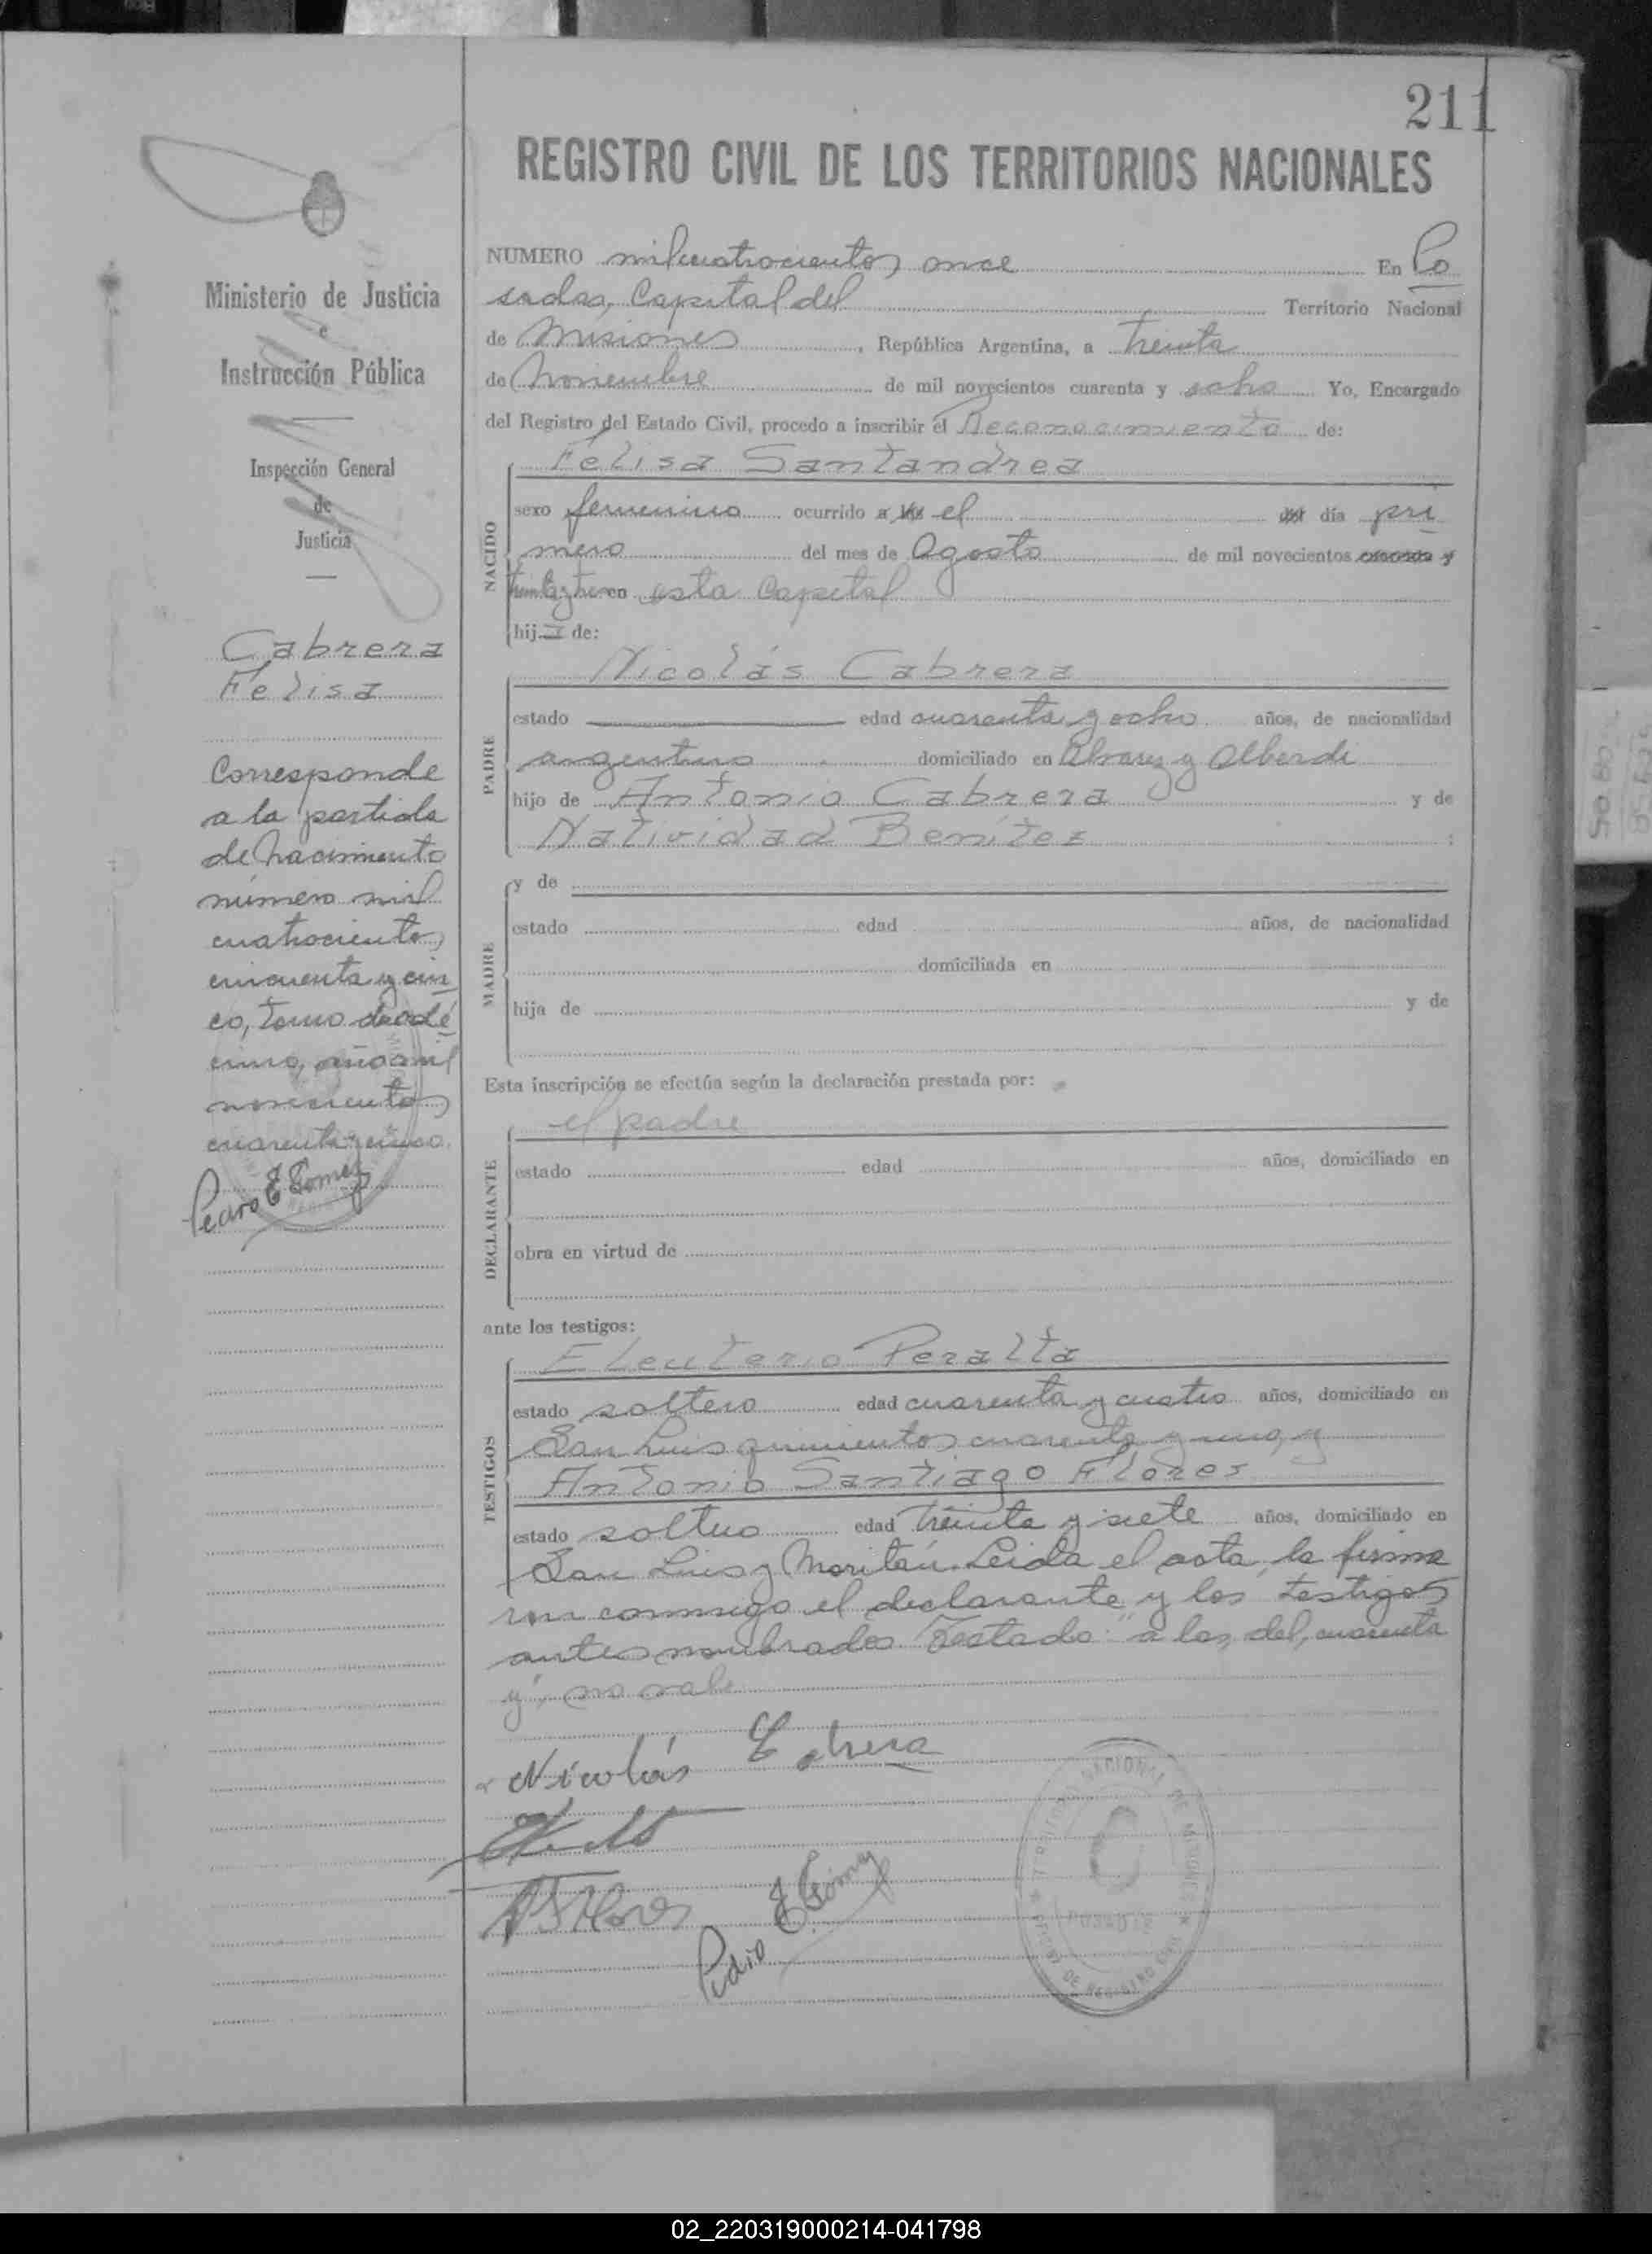 211
REGISTRO CIVIL DE LOS TERRITORIOS NACIONALES
Ministerio de Justicia
e
Instrucción Pública
Inspección General
de
Justicia
Cabrera
Felisa
Corresponde
a la partida
de nacimiento
número mil
cuatrocientos
cincuenta y cin
co, tomo duodé
cimo, año mil
novecientos
cuarenta y cinco.
Pedro E Gomez
NUMERO mil cuatrocientos once En Po
sadas, Capital del Territorio Nacional
de Misiones, República Argentina, a treinta
de Noviembre de mil novecientos cuarenta y ocho Yo, Encargado
del Registro del Estado Civil, procedo a inscribir el Reconocimiento de:
Felisa Santandrea
NACIDO
sexo femenino ocurrido a las el del día pri
mero del mes de Agosto de mil novecientos cuarenta y
treinta y tres en esta Capital
hija de:
Nicolás Cabrera
PADRE
estado edad cuarenta y ocho años, de nacionalidad
argentino domiciliado en Alvarez y Alberdi
hijo de Antonio Cabrera y de
Natividad Benítez ;
MADRE
y de
estado edad años, de nacionalidad
domiciliada en
hija de y de
Esta inscripción se efectúa según la declaración prestada por:
el padre
DECLARANTE
estado edad años, domiciliado en
obra en virtud de
ante los testigos:
Eleuterio Peralta
TESTIGOS
estado soltero edad cuarenta y cuatro años, domiciliado en
San Luis quinientos cuarenta y uno, y
Antonio Santiago Flores
estado soltero edad treinta y siete años, domiciliado en
San Luis y Moritán. Leida el acta, la firma
ron conmigo el declarante y los testigos
antes nombrados. Testado: "a las, del, cuarenta
y", no vale
Nicolás Cabrera
A S Flores
Pedro E. Gómez
TERRITORIO NACIONAL DE MISIONES
POSADAS
OFICINA DE REGISTRO CIVIL
02_220319000214-041798